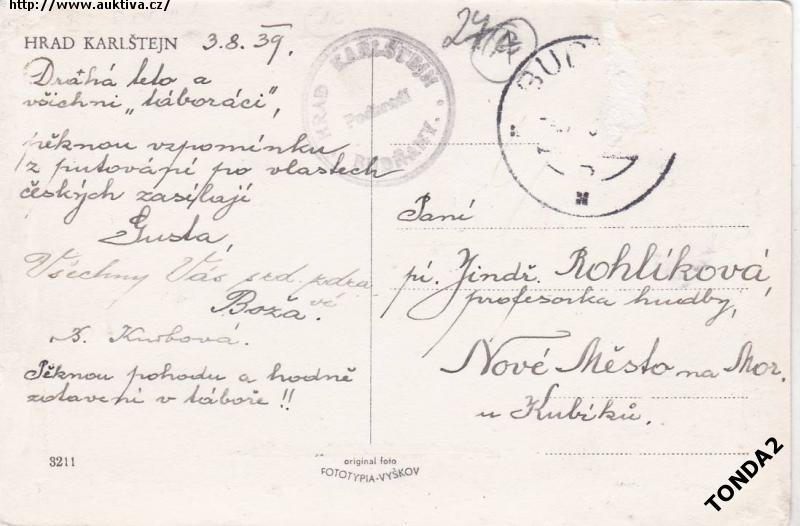 http://www.auktiva.cz/
HRAD KARLŠTEJN 3.8.39.
Drahá teto a
všichni „táboráci",
pěknou vzpomínku
z putování po vlastech
českých zasílají
Gusta,
Všechny Vás srd. zdra-
ví
Boža.
Pěknou pohodu a hodně
zotavení v táboře!!
3211
original foto
FOTOTYPIA-VYŠKOV
HRAD KARLŠTEJN
BUDŇANY.
24
BUD
Paní
pí. Jindř. Rohlíková,
profesorka hudby,
Nové Město na Mor.
u Kubíků.
TONDA2